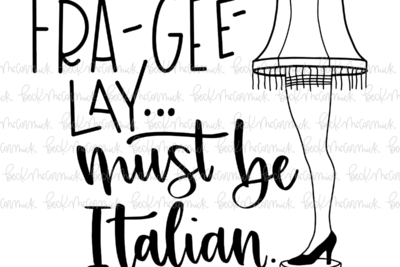 FRA-GEE-
LAY...
must be
Italian.